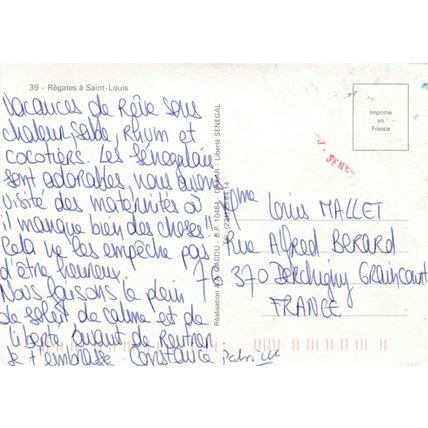 39 - Régates à Saint-Louis
Vacances de Rêve sous
chaleur, sable, Rhum et
cocotiers. Les Sénégalais
sont adorables, nous avons
visité des maternités où
il manque bien des choses!!
Cela ne les empêche pas
d'être heureux.
Nous faisons le plein
de soleil de calme et de
liberté avant de Rentrer
Je t'embrasse Constance
Réalisation GACOU - B.P. 10484 - DAKAR - Liberté SENEGAL
Imprimé
en
France
SENE
Mme Louis MALLET
Rue Alfred BERARD
70370 Derchigny Graincourt
FRANCE